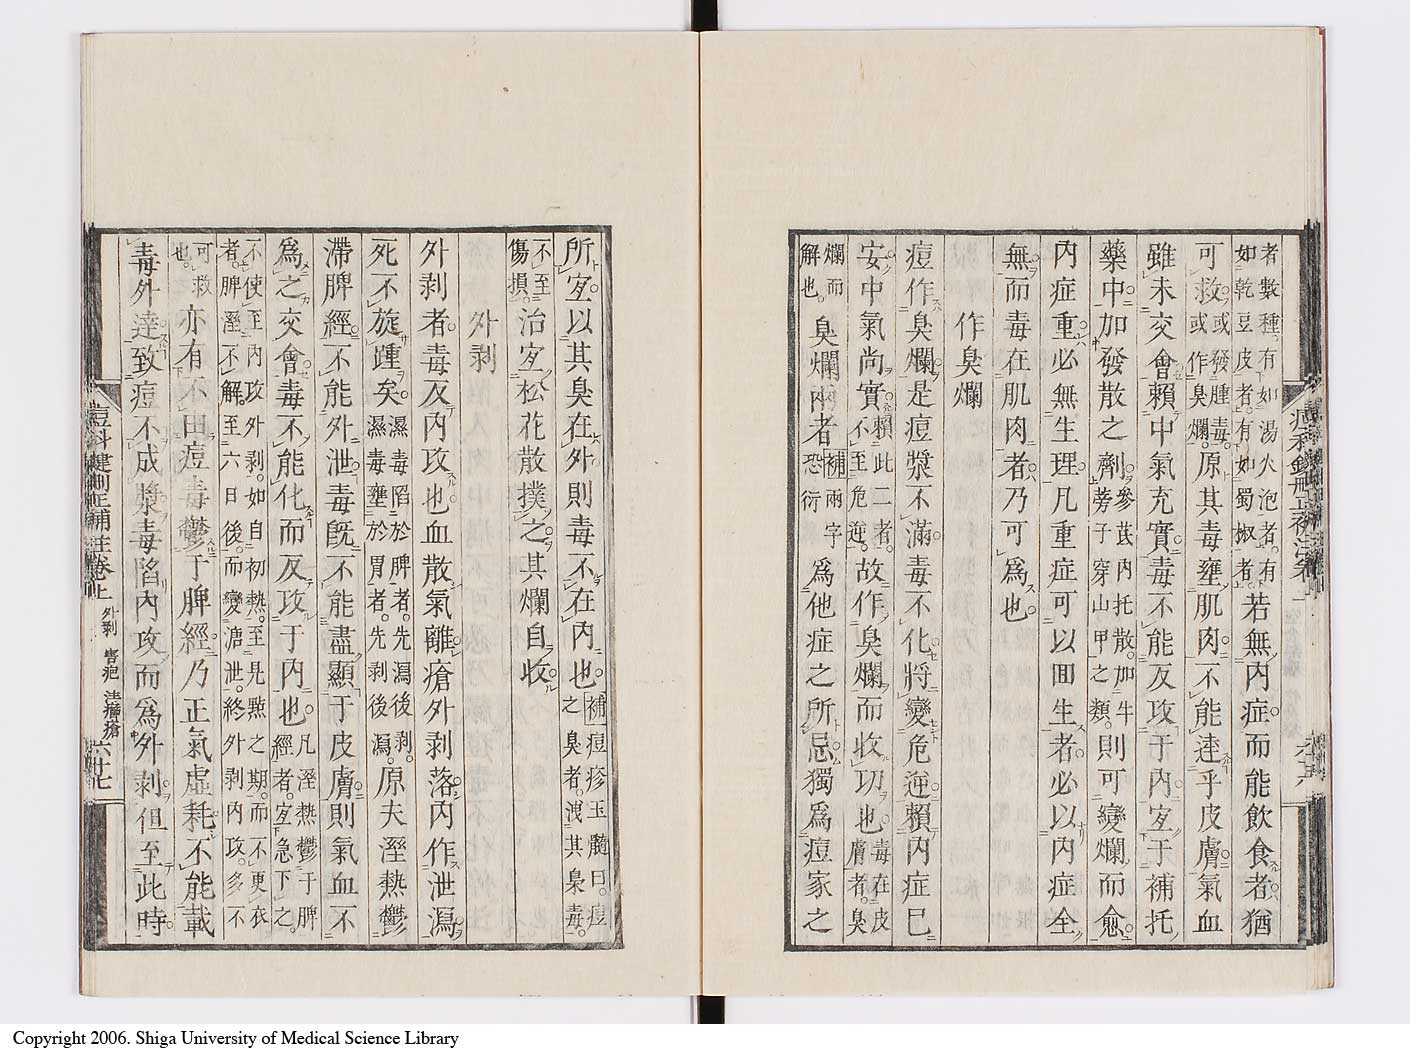 者數種有如湯火泡者有
如乾豆皮者有如蜀椒者
若無內症而能飮食者猶
可救或發腫毒
或作臭爛
原其毒壅肌肉不能達乎皮膚氣血
雖未交會賴中氣充實毒不能反攻于內宜于補托
藥中加發散之劑
參芪內托散加牛
蒡子穿山甲之類
則可變爛而愈
內症重必無生理凡重症可以囬生者必以內症全
無而毒在肌肉者乃可爲也
作臭爛
痘作臭爛是痘漿不滿毒不化將變危逆賴內症已
安中氣尚實
賴此二者
不至危逆
故作臭爛而收功也
毒在皮
膚者臭
爛而
解也
臭爛兩者
補兩字
恐衍
爲他症之所忌獨爲痘家之
所宜以其臭在外則毒不在內也
補痘疹玉髓曰痘
之臭者洩其臭毒
不至
傷損
治宜松花散撲之其爛自收
外剥
外剥者毒反內攻也血散氣離瘡外剥落內作泄瀉
死不旋踵矣
濕毒陷於脾者先瀉後剥
濕毒壅於胃者先剥後瀉
原夫溼熱鬱
滯脾經不能外泄毒旣不能盡顯于皮膚則氣血不
爲之交會毒不能化而反攻于內也
凡溼熱鬱于脾
經者宜急下之
不使至內攻外剥如自初熱至見㸃之期而不更衣
者脾溼不解至六日後而變溏泄終外剥內攻多不
可救
也
亦有不由痘毒鬱于脾經乃正氣虛耗不能載
毒外達致痘不成漿毒陷內攻而爲外剥但至此時
痘科鍵刪正補註卷上
外剥
六廿七
Copyright 2006. Shiga University of Medical Science Library